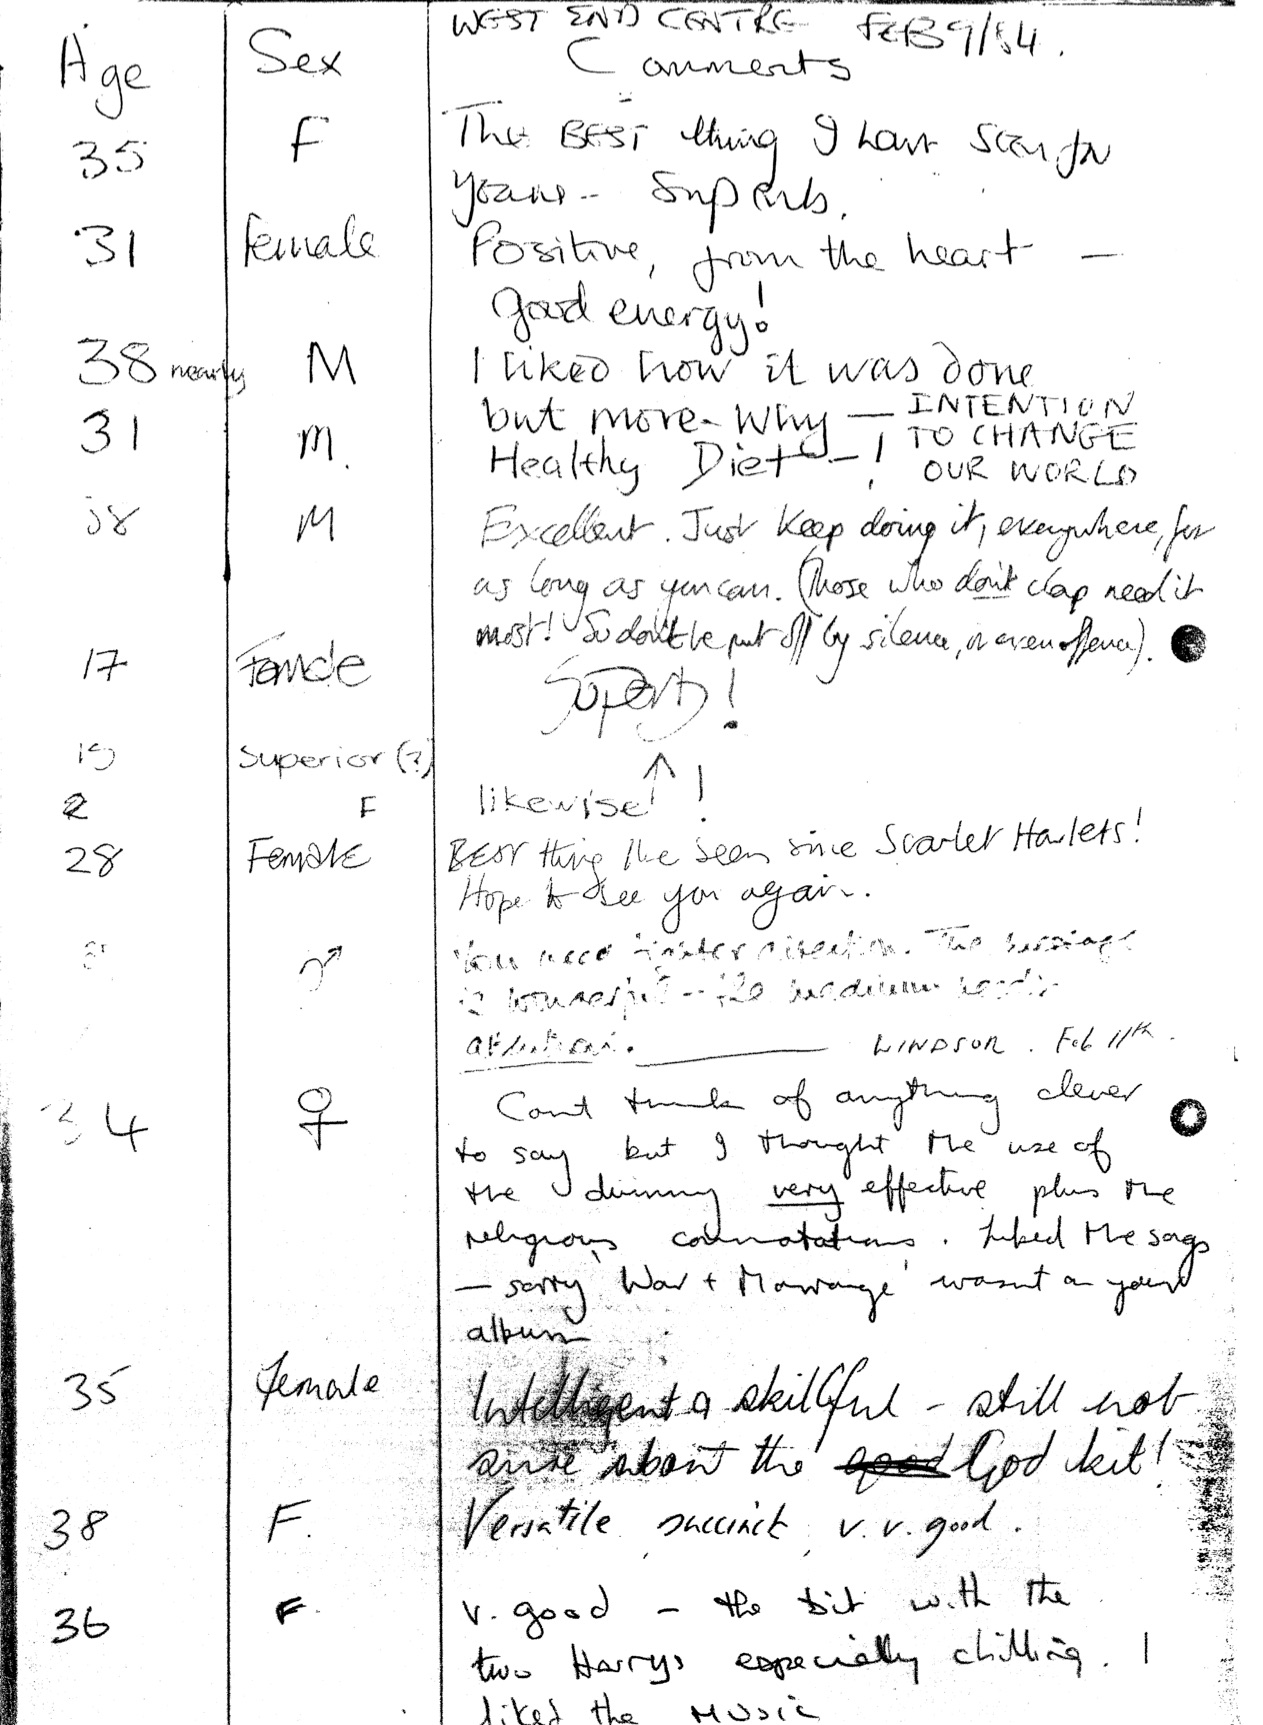 WEST END CENTRE FEB 9/84.
Age Sex Comments
35 F The BEST thing I have seen for
years - Superb.
31 Female Positive, from the heart —
good energy!
38 nearly M I liked how it was done
but more - Why — INTENTION
TO CHANGE
OUR WORLD
31 M. Healthy Diet - !
38 M Excellent. Just keep doing it, everywhere, for
as long as you can. (Those who don't clap need it
most! So don't be put off by silence, or even offence).
17 Female Superb!
19 Superior (?)
2 F likewise! !
28 Female BEST thing I've seen since Scarlet Harlets!
Hope to see you again.
♂ You need tighter direction. The message
is wonderful - the medium needs
attention. LINDSOR. Feb 11th.
34 ♀ Cant think of anything clever
to say but I thought the use of
the dummy very effective plus the
religious connotations. Liked the songs
— sorry 'War + Marriage' wasnt on your
album
35 female Intelligent & skillful - still not
sure about the God bit!
38 F. Versatile, succinct, v.v. good.
36 F. v. good - the bit with the
two Harrys especially chilling. I
liked the music